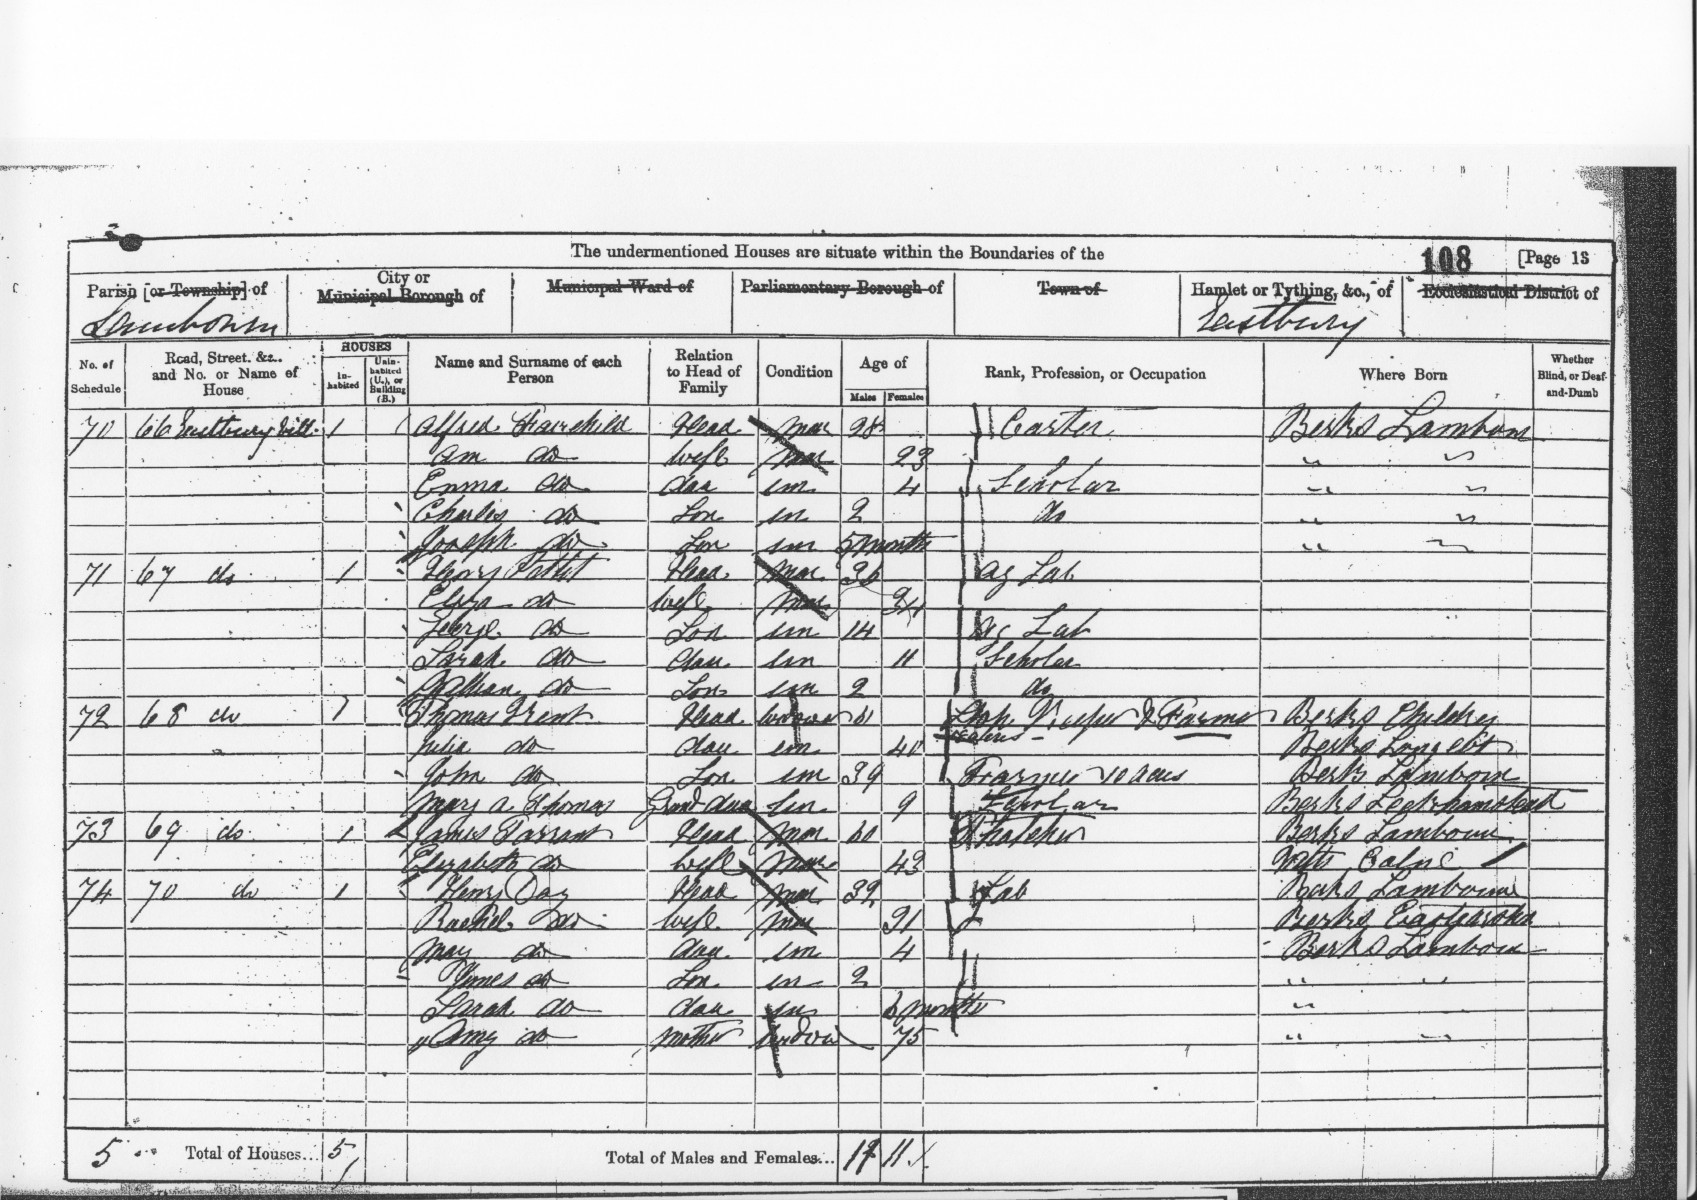 The undermentioned Houses are situate within the Boundaries of the 108 [Page 13
Parish [or Township] of City or Municipal Borough of Municipal Ward of Parliamentary Borough of Town of Hamlet or Tything, &c., of Ecclesiastical District of
Lambourn Eastbury
No. of Schedule Road, Street, &c., and No. or Name of House HOUSES Inhabited Uninhabited (U.), or Building (B.) Name and Surname of each Person Relation to Head of Family Condition Age of Males Females Rank, Profession, or Occupation Where Born Whether Blind, or Deaf-and-Dumb
70 66 Eastbury Vill. 1 Alfred Fairchild Head Mar 28 Carter Berks Lambourn
Ann do Wife Mar 23 " "
Emma do dau un 4 Scholar " "
Charles do Son un 2 do " "
Joseph do Son un 5 months " "
71 67 do 1 Henry Head Mar 36 Ag Lab
Eliza do Wife Mar 34
George do Son un 14 Ag Lab
Sarah do dau un 11 Scholar
William do Son un 2 do
72 68 do 1 Thomas Grant Head Widower 61 Shop Keeper & Farmer Berks Childrey
Julia do dau un 40 Berks
John do Son un 39 Farmer 10 acres Berks Lambourn
Mary A Thomas Grand dau un 9 Scholar Berks Leckhamstead
73 69 do 1 James Tarrant Head Mar 60 Thatcher Berks Lambourn
Elizabeth do Wife Mar 43 Wilts Calne
74 70 do 1 Henry Day Head Mar 32 Lab Berks Lambourn
Rachel do Wife Mar 31 Berks Eastgarston
Mary do dau un 4 Berks Lambourn
James do Son un 2 " "
Sarah do dau un 6 months "
Amy do Mother Widow 75 " "
5 Total of Houses... 5 Total of Males and Females... 11